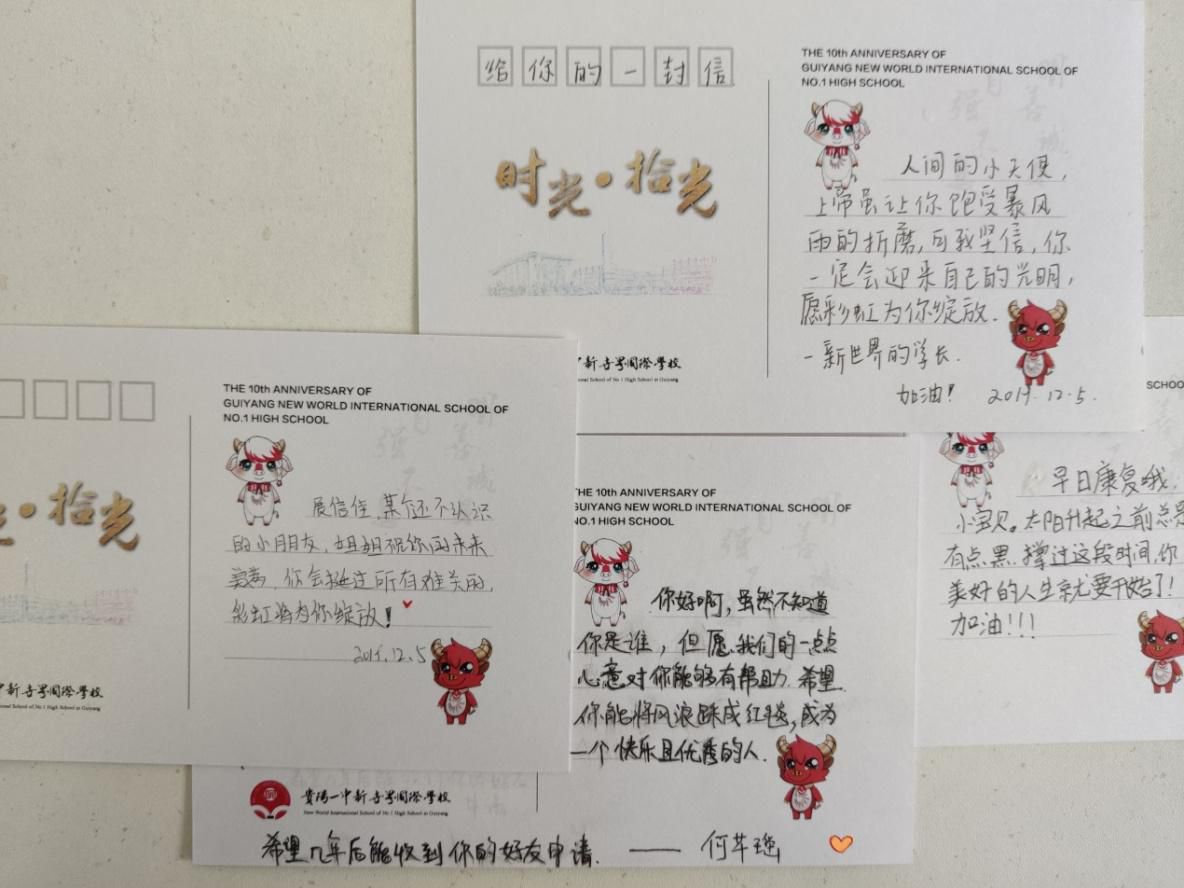 给你的一封信
时光·拾光
THE 10th ANNIVERSARY OF
GUIYANG NEW WORLD INTERNATIONAL SCHOOL OF
NO.1 HIGH SCHOOL
人间的小天使,
上帝虽让你饱受暴风
雨的折磨,可我坚信,你
一定会迎来自己的光明,
愿彩虹为你绽放.
-新世界的学长.
加油!
2019.12.5.
中新世界國際學校
onal School of No.1 High School at Guiyang
THE 10th ANNIVERSARY OF
GUIYANG NEW WORLD INTERNATIONAL SCHOOL OF
NO.1 HIGH SCHOOL
·拾光
展信佳,某个还不认识
的小朋友,姐姐祝你的未来
你会挺过所有难关的,
彩虹将为你绽放!
2019.12.5
中新世界國際學校
New World International School of No.1 High School at Guiyang
THE 10th ANNIVERSARY OF
GUIYANG NEW WORLD INTERNATIONAL SCHOOL OF
NO.1 HIGH SCHOOL
你好啊,虽然不知道
你是谁,但愿我们的一点点
心意对你能够有帮助.希望
你能将风浪踩成红毯,成为
一个快乐且优秀的人.
貴陽一中新世界國際學校
New World International School of No.1 High School at Guiyang
希望几年后能收到你的好友申请.
—— 何芊瑶
SCHOO
早日康复哦
小宝贝。太阳升起之前总是
有点黑,撑过这段时间,你
美好的人生就要开始了!
加油!!!